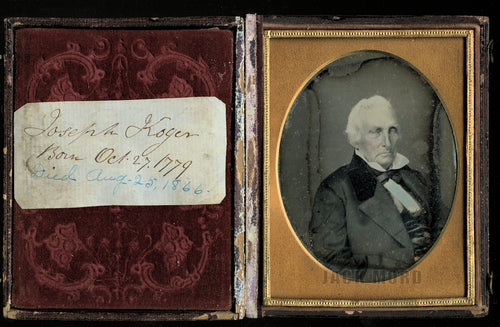 Joseph Koger
Born Oct. 27, 1779
Died Aug. 25, 1866.
JACK MORD